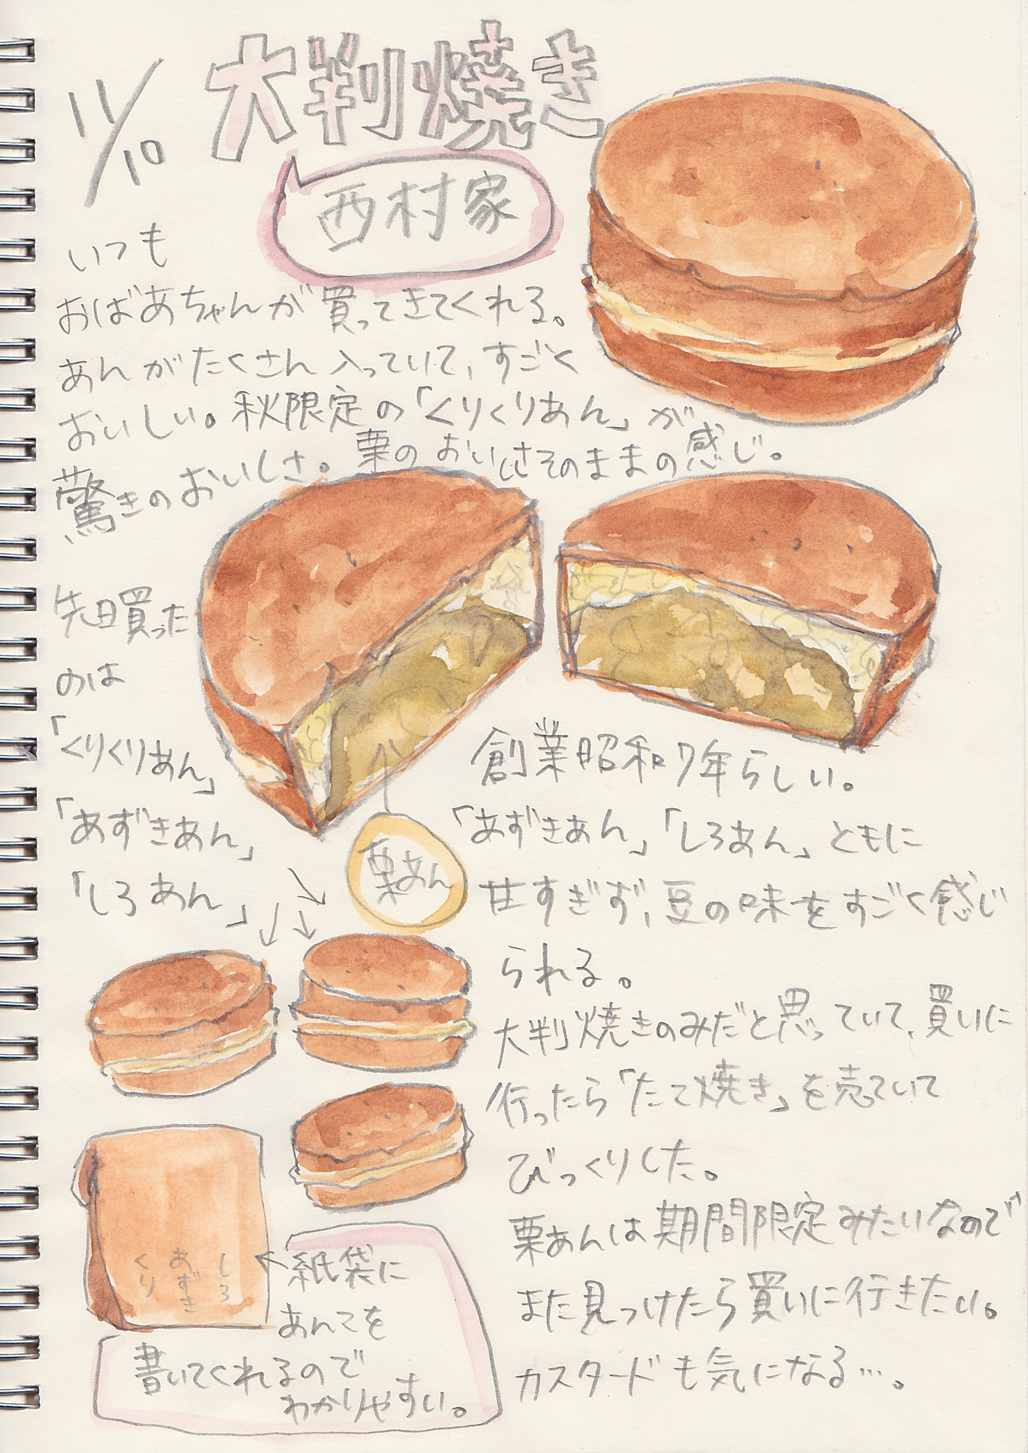 11/10
大判焼き
西村家
いつも
おばあちゃんが買ってきてくれる。
あんがたくさん入っていて、すごく
おいしい。秋限定の「くりくりあん」が
驚きのおいしさ。栗のおいしさそのままの感じ。
先日買った
のは
「くりくりあん」
「あずきあん」
「しろあん」
栗あん
創業昭和7年らしい。
「あずきあん」「しろあん」ともに
甘すぎず、豆の味をすごく感じ
られる。
大判焼きのみだと思っていて、買いに
行ったら「たて焼き」を売っていて
びっくりした。
栗あんは期間限定みたいなので
また見つけたら買いに行きたい。
カスタードも気になる…。
しろ
あずき
くり
←紙袋に
あんてを
書いてくれるので
わかりやすい。